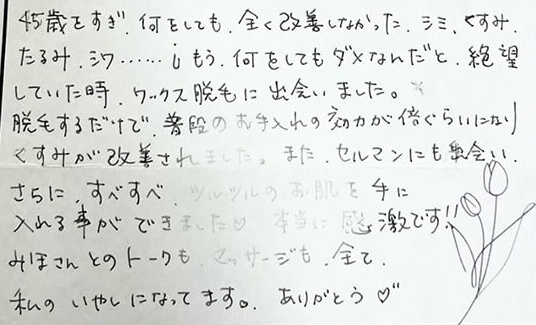 45歳をすぎ、何をしても、全く改善しなかった、シミ、くすみ、
たるみ、シワ……もう、何をしてもダメなんだと、絶望
していた時、ワックス脱毛に出会いました。
脱毛するだけで、普段のお手入れの効力が倍ぐらいになり
くすみが改善されました。また、セルマンにも出会い、
さらに、すべすべ、ツルツルのお肌を手に
入れる事ができました♡ 本当に感激です!!
みほさんとのトークも、マッサージも、全て、
私のいやしになってます。ありがとう♡"